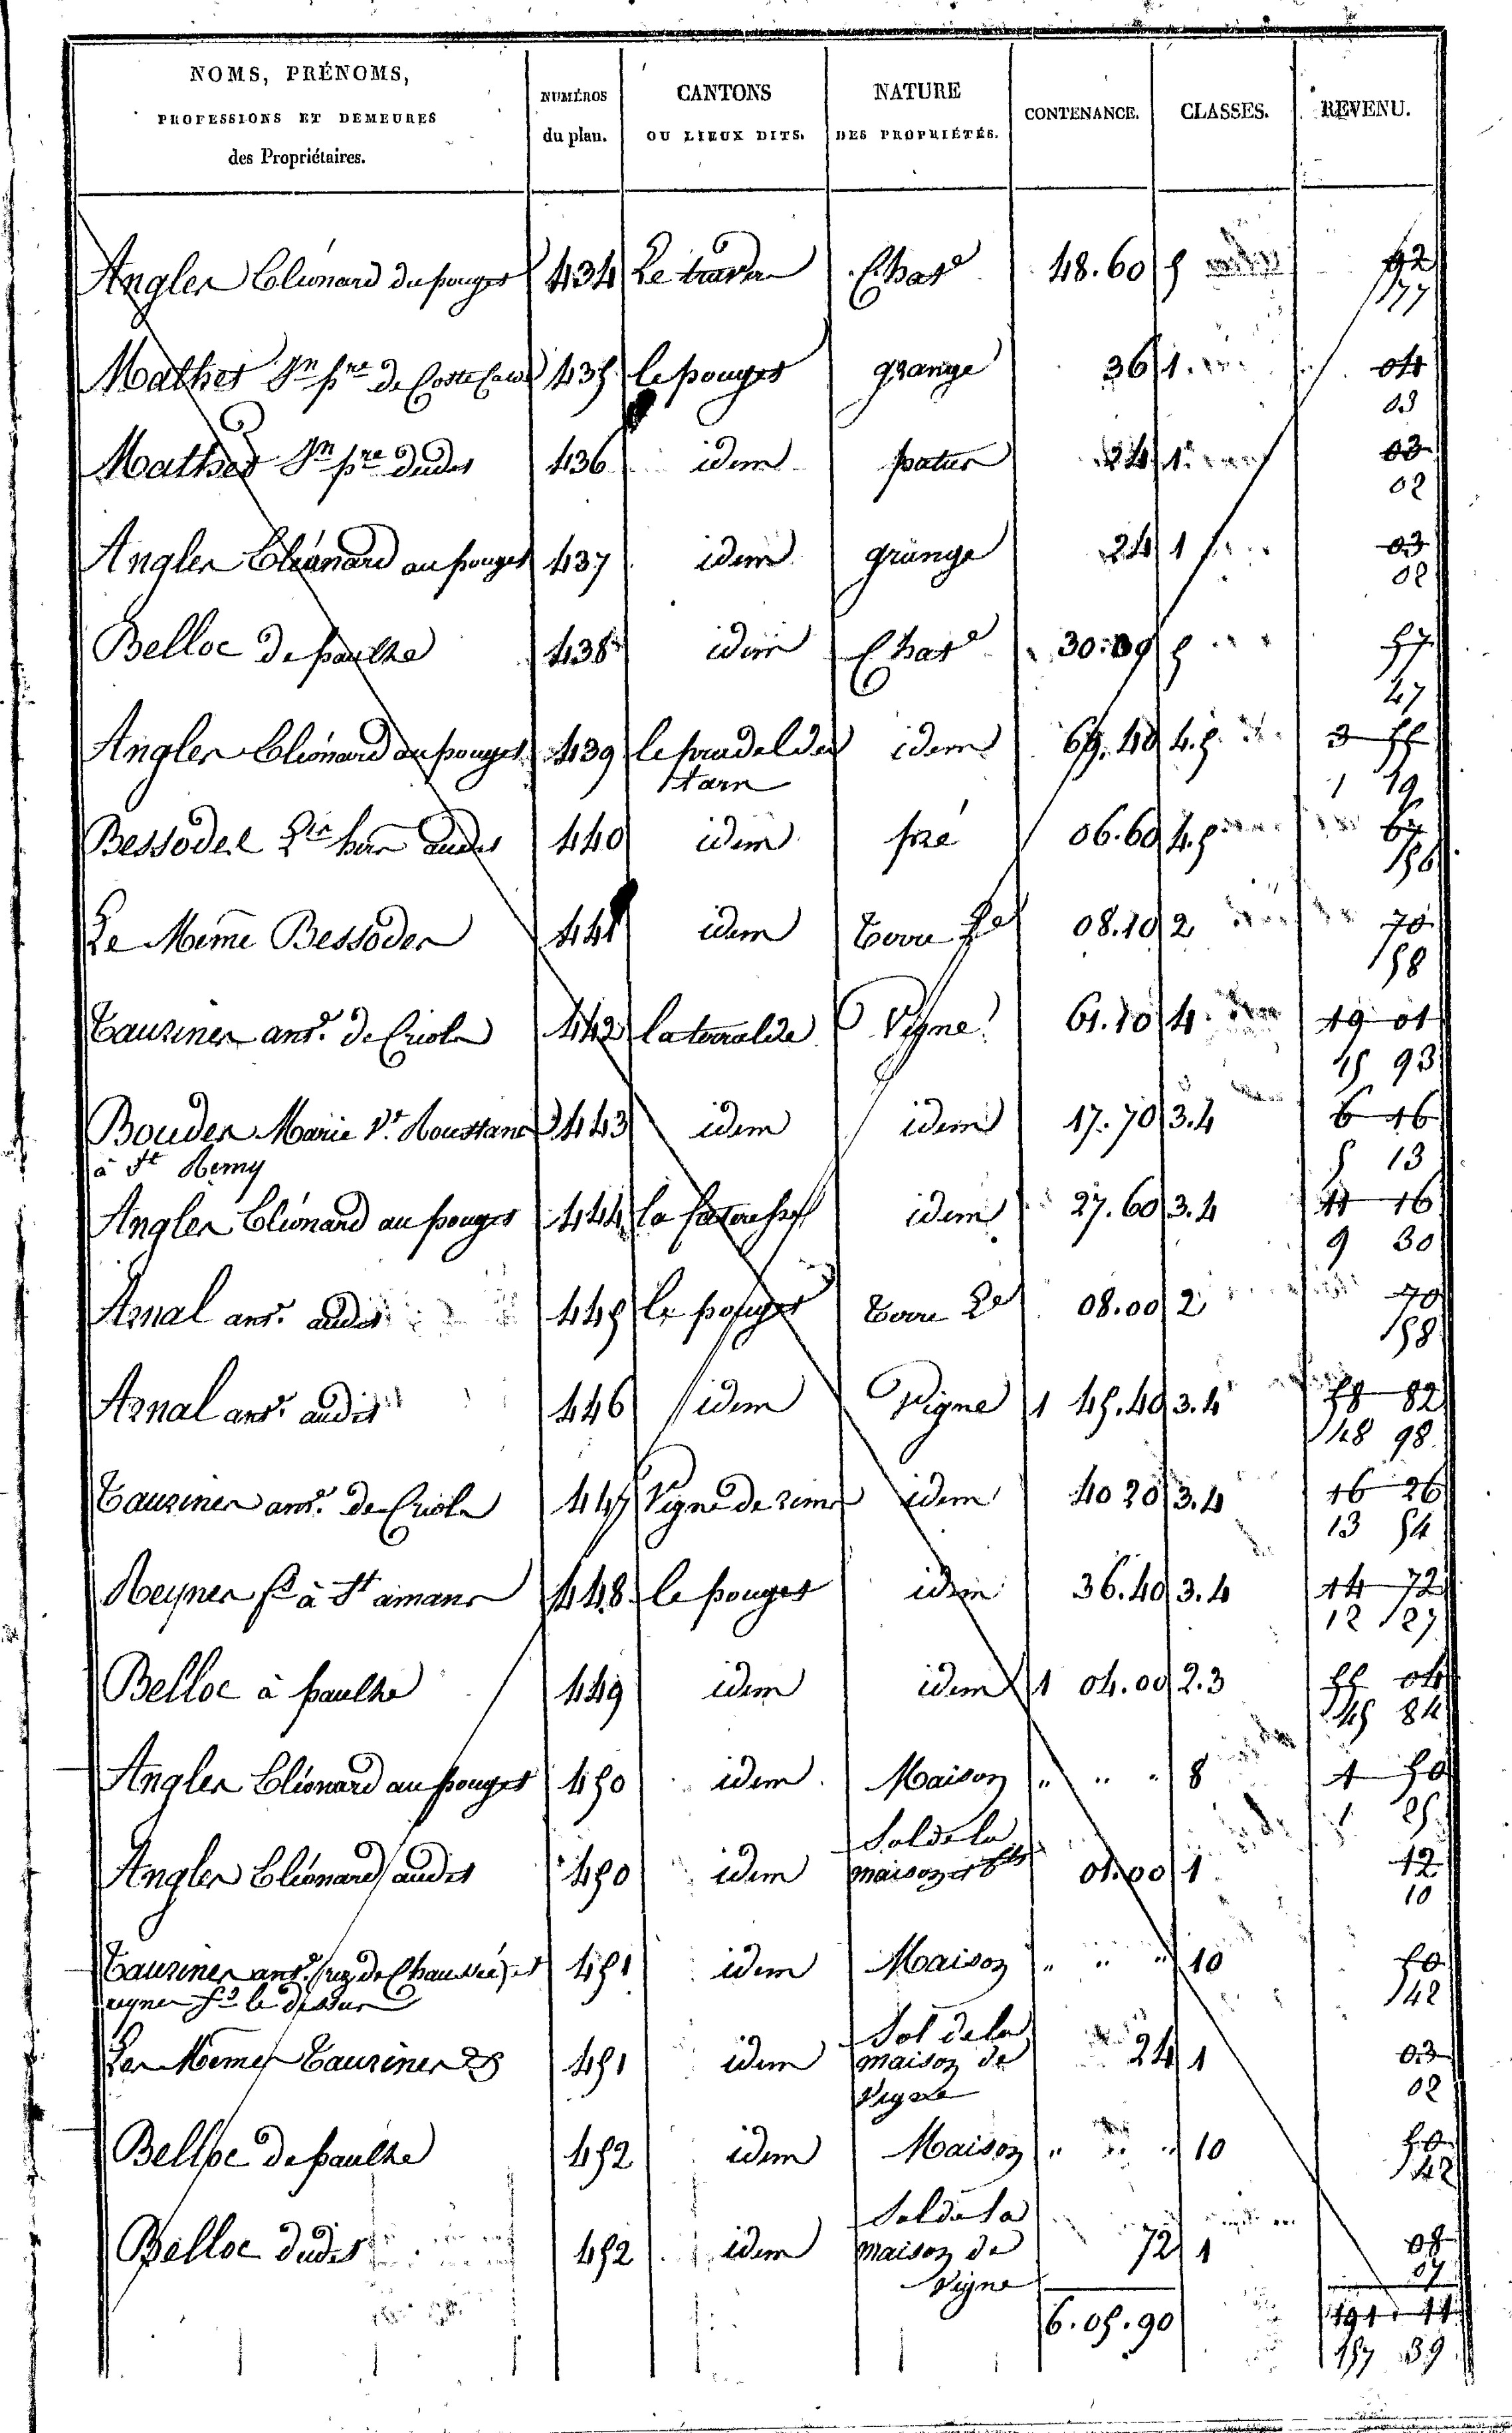 NOMS, PRÉNOMS, PROFESSIONS ET DEMEURES des Propriétaires. NUMÉROS du plan. CANTONS OU LIEUX DITS. NATURE DES PROPRIÉTÉS. CONTENANCE. CLASSES. REVENU.
Angles Cléonard du pouget 434 Le travers Chat 48.60 5 92
77
Mathet Jn pre de Coste 435 le pouget grange 36 1 04
03
Mathet Jn pre dudit 436 idem patus 24 1 03
02
Angles Cléonard au pouget 437 idem grange 24 1 03
02
Belloc de paulhe 438 idem Chat 30.09 5 57
47
Angles Cléonard au pouget 439 le idem 69.40 4.5 3 55
tarn 1 19
Bessodes audit 440 idem pré 06.60 4.5 67
56
Le Même Bessodes 441 idem terre 08.10 2 70
58
Tauriner ant. de Criols 442 la Vigne 61.10 4 19 01
15 93
Boudes Marie Ve Roustanc 443 idem idem 17.70 3.4 6 16
à St Remy 5 13
Angles Cléonard au pouget 444 la idem 27.60 3.4 11 16
9 30
Arnal ant. audit 445 le pouget terre 08.00 2 70
58
Arnal ant. audit 446 idem Vigne 1 45.40 3.4 58 82
48 98
Tauriner ant. de Criols 447 Vigne de idem 40 20 3.4 16 26
13 54
Reynes fs à St amans 448 le pouget idem 36.40 3.4 14 72
12 27
Belloc à paulhe 449 idem idem 1 04.00 2.3 55 04
45 84
Angles Cléonard au pouget 450 idem Maison " " " 8 1 50
1 25
Sol de la
Angles Cléonard audit 450 idem maison et 01.00 1 12
10
Tauriner ant. (rez de Chaussée) et 451 idem Maison " " " 10 50
reynes fs le dessus 42
Sol de la
Les Mêmes Tauriner 451 idem maison de 24 1 03
Vigne 02
Belloc de paulhe 452 idem Maison " " " 10 50
42
Sol de la
Belloc dudit 452 idem maison de 72 1 08
Vigne 07
6.05.90 191 11
157 39